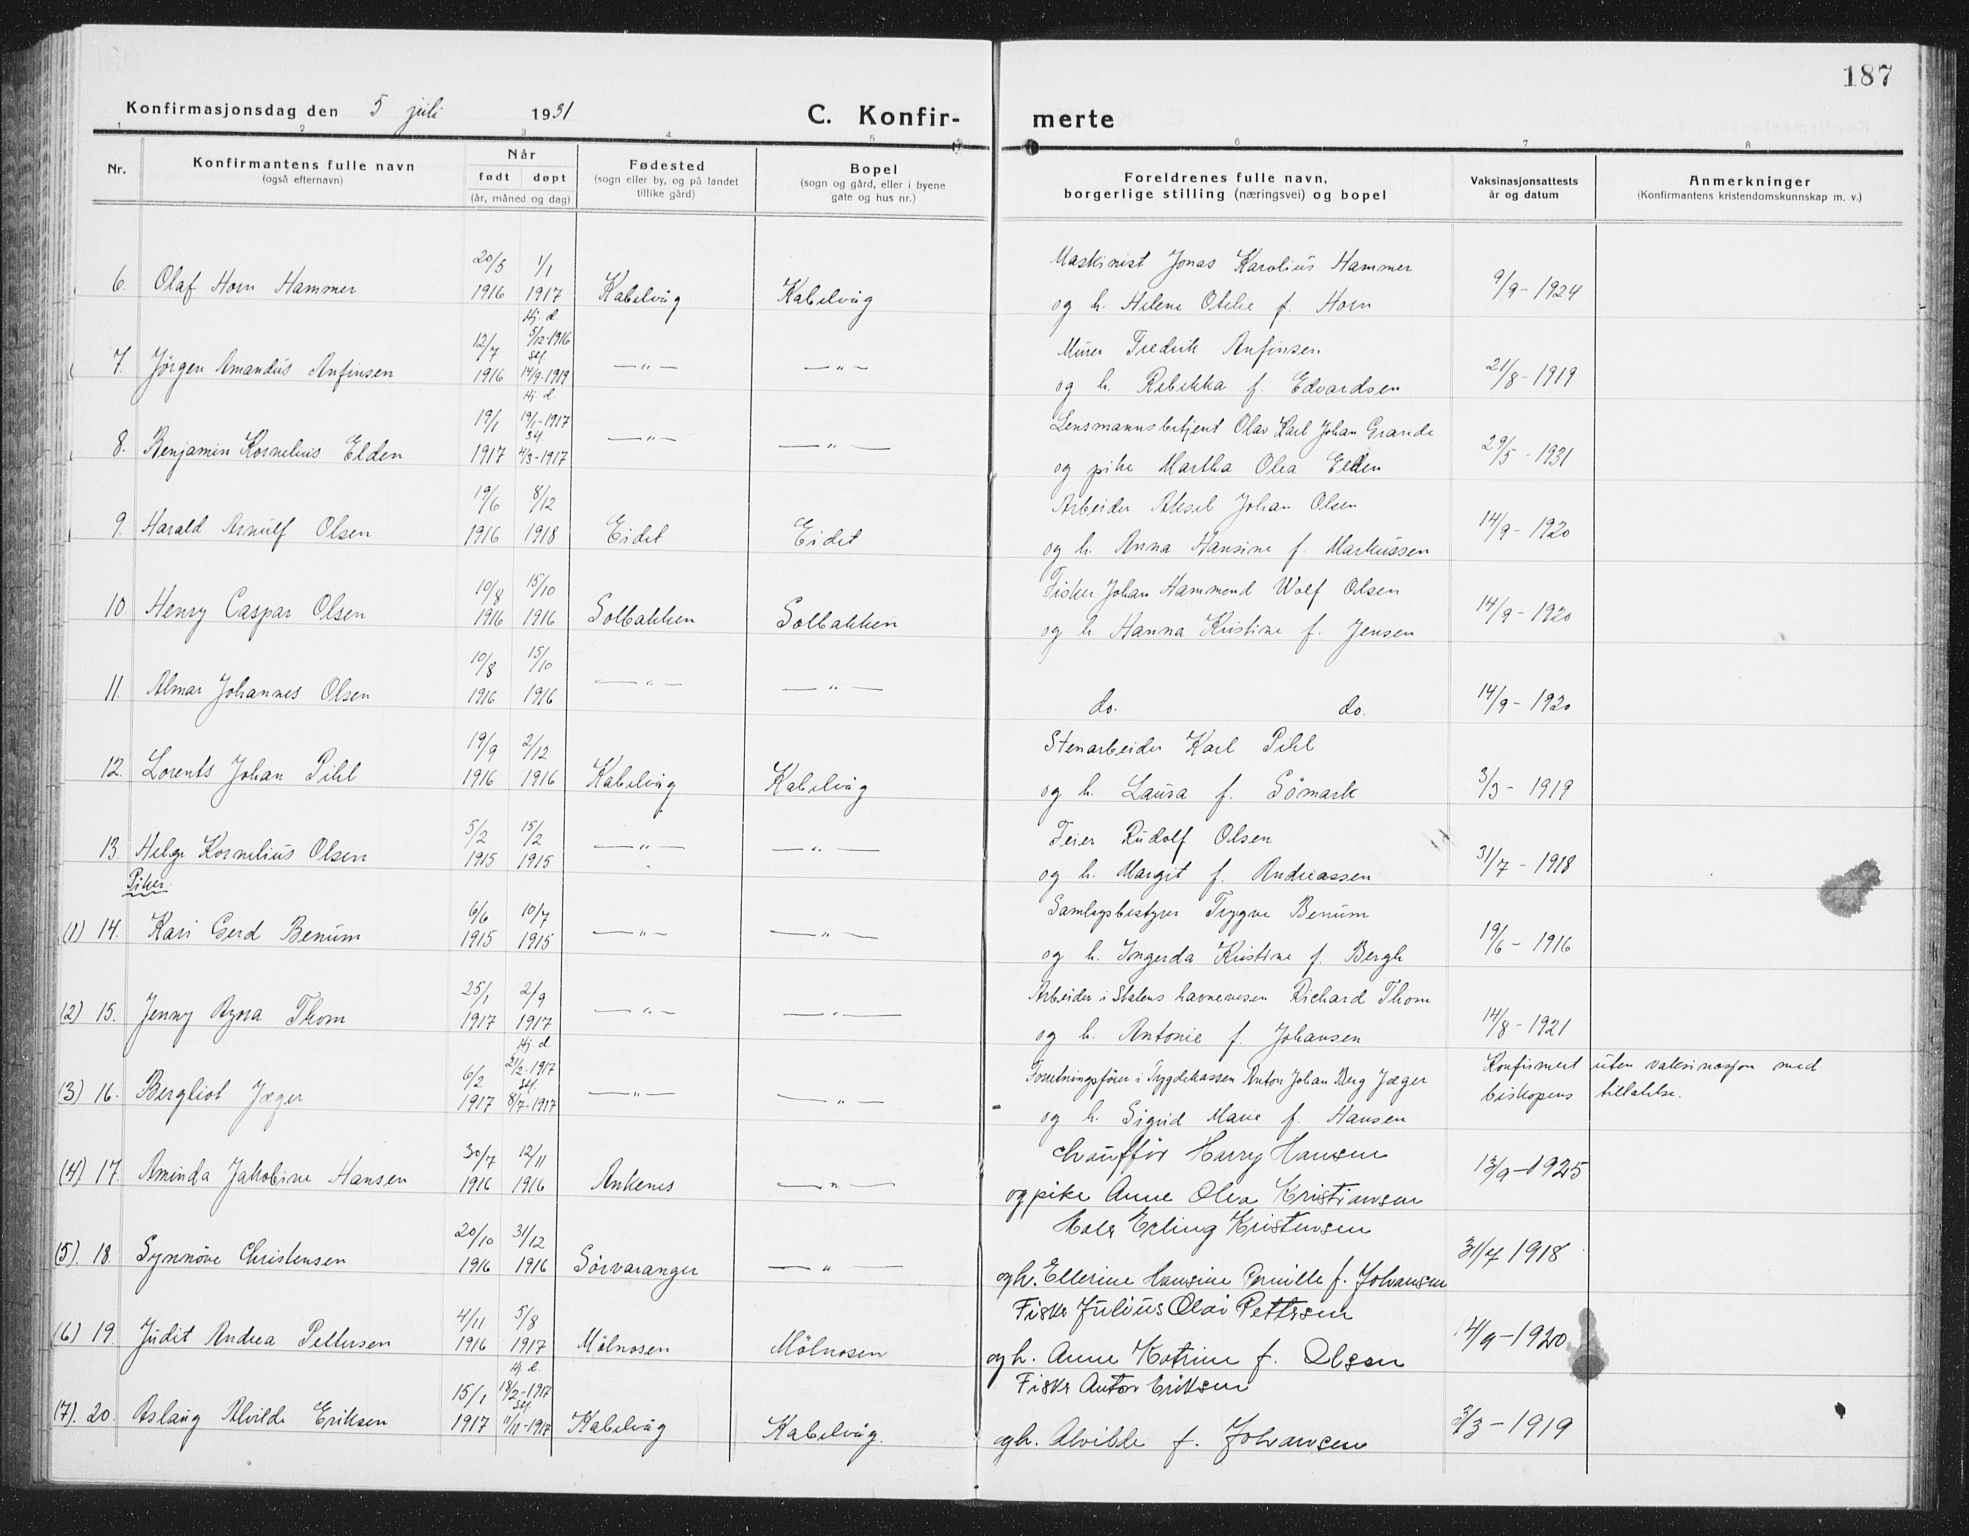 187
Konfirmasjonsdag den 5 juli 1931 C. Konfir- merte
1 2 3 4 5 6 7 8
Nr. Konfirmantens fulle navn Når Fødested Bopel Foreldrenes fulle navn, Vaksinasjonsattests Anmerkninger
(også efternavn) født døpt (sogn eller by, og på landet (sogn og gård, eller i byene borgerlige stilling (næringsvei) og bopel år og datum (Konfirmantens kristendomskunnskap m. v.)
(år, måned og dag) tillike gård) gate og hus nr.)
20/5 1/1 Maskinist Jonas Karolius Hammer
6. Olaf Horn Hammer 1916 1917 Kabelvåg Kabelvåg og h. Helene Otelie f. Horn 9/9-1924
12/7 Hj. d. 5/12-1916 Murer Fredrik Anfinsen
7. Jørgen Amandus Anfinsen 1916 stf. 14/9-1919 —"— —"— og h. Rebekka f. Edvardsen 21/8-1919
19/1 Hj. d. 19/1-1917 Lensmannsbetjent Olav Karl Johan Grande
8. Benjamin Kornelius Elden 1917 stf. 4/3-1917 —"— —"— og pike Martha Olea Elden 29/5-1931
19/6 8/12 Arbeider Aksel Johan Olsen
9. Harald Arnulf Olsen 1916 1918 Eidet Eidet og h. Anna Hansine f. Markussen 14/9-1920
10/8 15/10 Fisker Johan Hammond Wolf Olsen
10. Henry Caspar Olsen 1916 1916 Solbakken Solbakken og h. Hanna Kristine f. Jensen 14/9-1920
10/8 15/10
11. Almar Johannes Olsen 1916 1916 —"— —"— do. do. 14/9-1920
19/9 2/12 Stenarbeider Karl Pihl
12. Lorents Johan Pihl 1916 1916 Kabelvåg Kabelvåg og h. Laura f. Sömark 3/3-1919
5/2 15/2 Feier Rudolf Olsen
13. Helge Kornelius Olsen 1915 1915 —"— —"— og h. Margit f. Andreassen 31/7-1918
Piker.
6/6 10/7 Samlagsbestyrer Trygve Benum
(1) 14. Kari Gerd Benum 1915 1915 —"— —"— og h. Ingerda Kristine f. Bergh 19/6-1916
25/1 2/9 Arbeider i Statens havnevesen Richard Thom
(2) 15. Jenny Azora Thom 1917 1917 —"— —"— og h. Antonie f. Johansen 14/8-1921
6/2 Hj. d. 21/2-1917 Forretningsfører i Trygdekassen Anton Johan Berg Jæger Konfirmert uten vaksinasjon med
(3) 16. Bergliot Jæger 1917 stf. 8/7-1917 —"— —"— og h. Sigrid Marie f. Hansen biskopens tillatelse.
30/7 12/11 Chauffør Harry Hansen
(4) 17. Aminda Jakobine Hansen 1916 1916 Ankenes —"— og pike Anne Olea Kristiansen 13/9-1925
20/10 31/12 Maler Erling Kristensen
(5). 18. Synnöve Christensen 1916 1916 Sörvaranger —"— og h. Ellerine Hansine Pernille f. Johansen 31/7 1918
4/11 5/8 Fisker Julius Olai Pettersen
(6) 19. Judit Andrea Pettersen 1916 1917 Mölnosen Mölnosen og h. Anne Katrine f. Olsen 14/9-1920
15/1 Hj. d. 18/2-1917 Fisker Anton Eriksen
(7). 20. Aslaug Alvilde Eriksen 1917 stf. 11/11-1917 Kabelvåg Kabelvåg. og h. Alvilde f. Johansen 3/3-1919